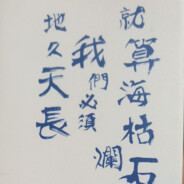 就算海枯石
瀾
我們必須
地久天長